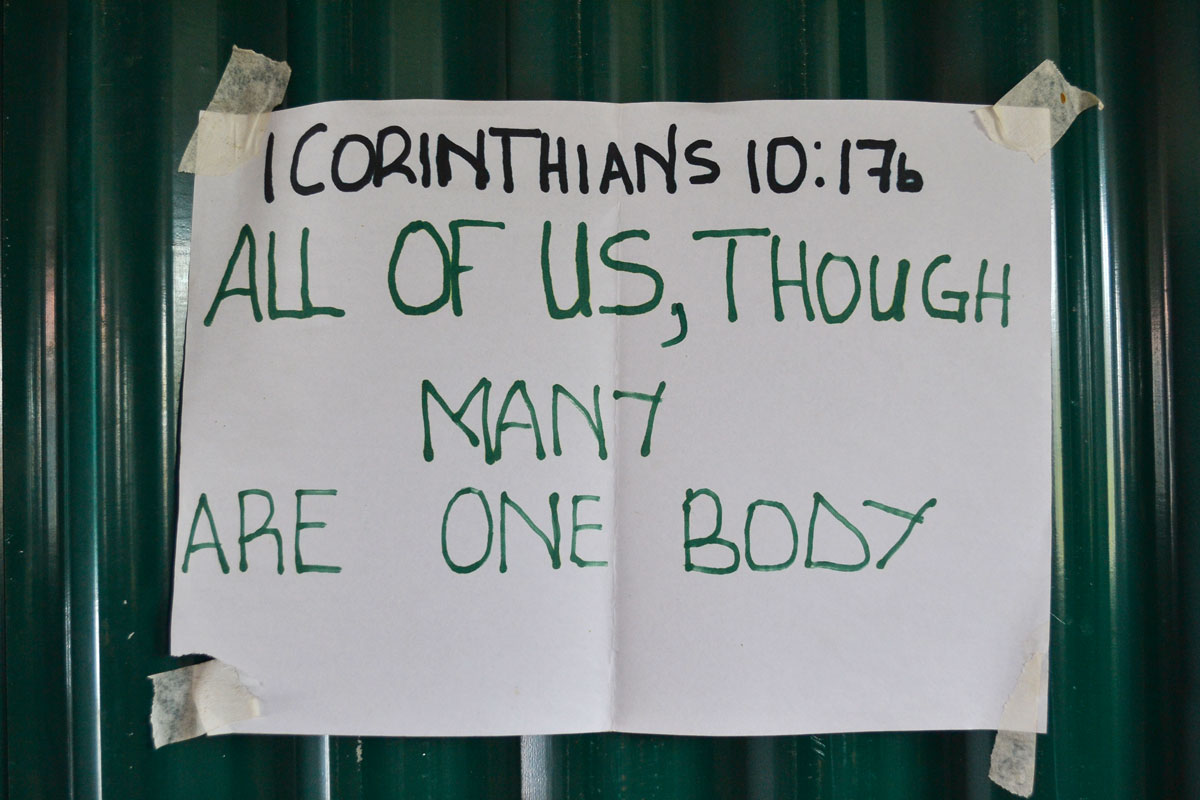 1 CORINTHIANS 10:17b
ALL OF US, THOUGH
MANY
ARE ONE BODY